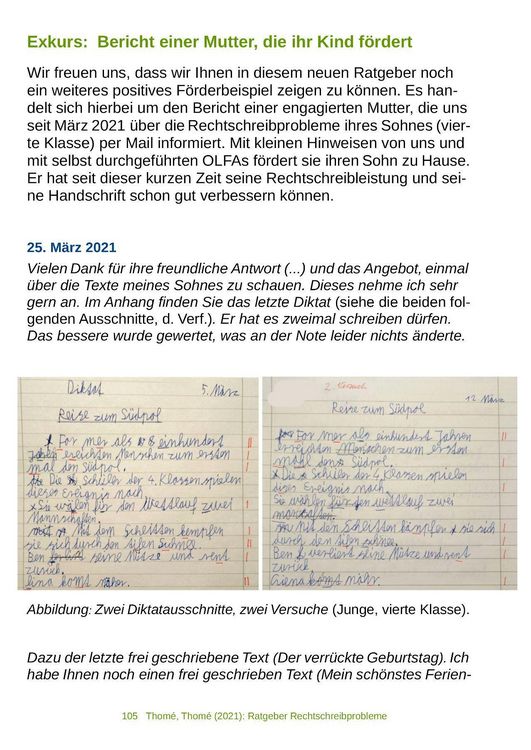 Exkurs:  Bericht einer Mutter, die ihr Kind fördert
Wir freuen uns, dass wir Ihnen in diesem neuen Ratgeber noch
ein weiteres positives Förderbeispiel zeigen zu können. Es han-
delt sich hierbei um den Bericht einer engagierten Mutter, die uns
seit März 2021 über die Rechtschreibprobleme ihres Sohnes (vier-
te Klasse) per Mail informiert. Mit kleinen Hinweisen von uns und
mit selbst durchgeführten OLFAs fördert sie ihren Sohn zu Hause.
Er hat seit dieser kurzen Zeit seine Rechtschreibleistung und sei-
ne Handschrift schon gut verbessern können.
25. März 2021
Vielen Dank für ihre freundliche Antwort (...) und das Angebot, einmal
über die Texte meines Sohnes zu schauen. Dieses nehme ich sehr
gern an. Im Anhang finden Sie das letzte Diktat (siehe die beiden fol-
genden Ausschnitte, d. Verf.). Er hat es zweimal schreiben dürfen.
Das bessere wurde gewertet, was an der Note leider nichts änderte.
Diktat 5. März
Reise zum Südpol
For mer als einhundert
Jahren ereichten Menschen zum ersten
mal den Südpol.
Die Schüler der 4. Klassen spielen
dieses Ereignis nach.
Sie wälen für den Westlauf zwei
Mannschaften.
Mit dem Scheitten kempfen
sie sich durch den tifen Schnee.
Ben seine Mütze und rent
zurück.
lina komt näher.
2. Versuch
12. März
Reise zum Südpol
For mer als einhundert Jahren
erreichten Menschen zum ersten
mahl den Südpol.
Die Schüler der 4. Klassen spielen
dises Ereignis nach.
Sie wählen für den wesstlauf zwei
Mit den Scheitten kämpfen sie sich
durch den tifen schnee.
Ben verliert seine Mütze und rent
zurück.
komt nähr.
Abbildung: Zwei Diktatausschnitte, zwei Versuche (Junge, vierte Klasse).
Dazu der letzte frei geschriebene Text (Der verrückte Geburtstag). Ich
habe Ihnen noch einen frei geschrieben Text (Mein schönstes Ferien-
105   Thomé, Thomé (2021): Ratgeber Rechtschreibprobleme